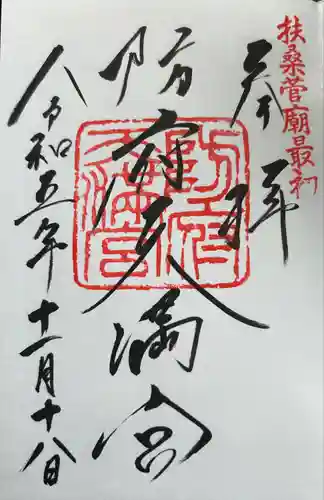 扶桑菅廟最初
奉拝
防府天満宮
令和五年十一月十八日
防府天満宮